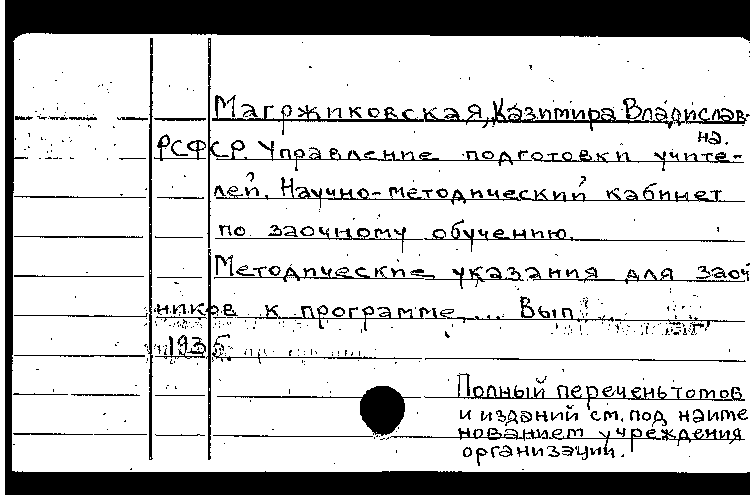 Магржиковская, Казимира Владислав-
на.
РСФСР. Управление подготовки учите-
лей. Научно-методический кабинет
по заочному обучению.
Методические указания для заоч
ников к программе... Вып
1935.
Полный перечень томов
и изданий см. под наиме
нованием учреждения
организации.